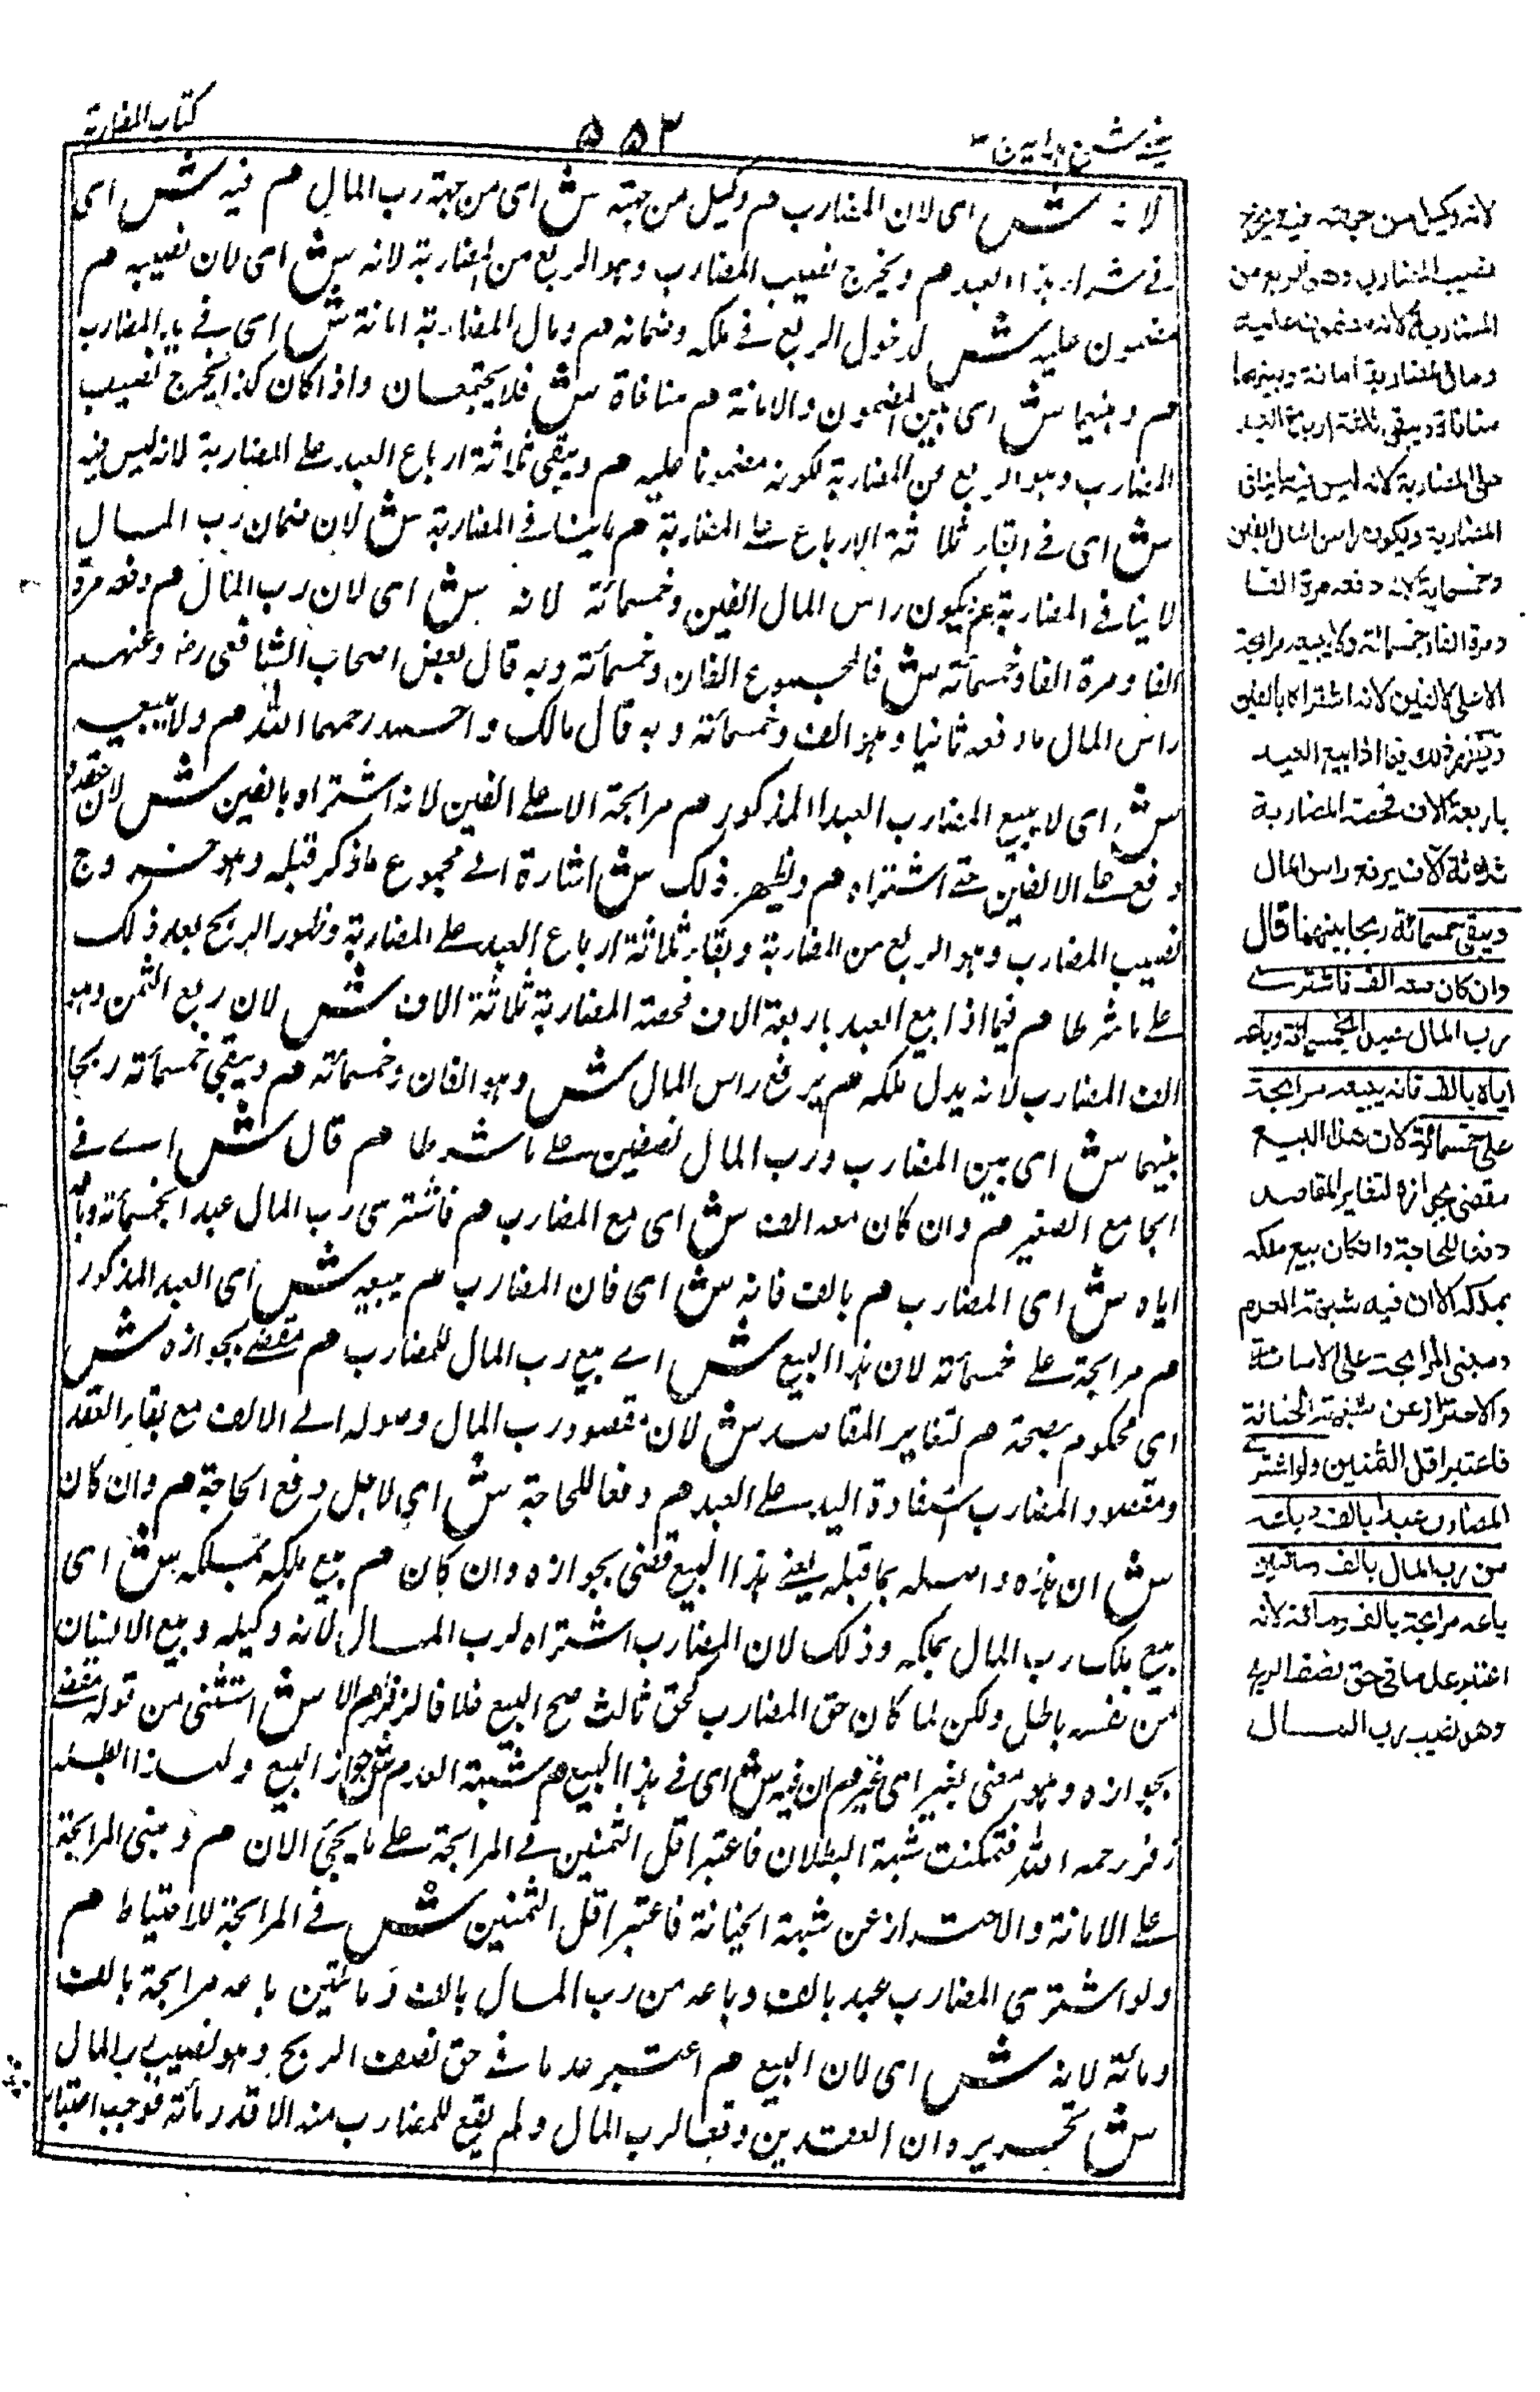 كتاب المضاربة
٥٥٢
لانه ش اى لان المضارب م وكيل من جهته ش اى من جهة رب المال م فيه ش اى
فى شراء هذا العبد م ويخرج نصيب المضارب وهو الربع من المضاربة لانه ش اى لان نصيبه م
مضمون عليه ش لدخول الربع فى ملكه وضمانه م ومال المضاربة امانة ش اى فى يد المضارب
م وبينهما ش اى بين المضمون والامانة م منافاة ش فلا يجتمعان واذا كان كذا يخرج نصيب
المضارب وهو الربع من المضاربة لكونه مضمونا عليه م ويبقى ثلاثة ارباع العبد على المضاربة لانه ليس فيه
ش اى فى ابقاء ثلاثة الارباع على المضاربة م ما ينافى المضاربة ش لان ضمان رب المال
لا ينافى المضاربة م ويكون راس المال الفين وخمسمائة لانه ش اى لان رب المال م دفعه مرة
الفا ومرة الفا وخمسمائة ش فالمجموع الفان وخمسمائة وبه قال بعض اصحاب الشافعى رض وعنهم
راس المال ما دفعه ثانيا وهو الف وخمسمائة وبه قال مالك واحمد رحمهما الله م ولا يبيعه
ش اى لا يبيع المضارب العبد المذكور م مرابحة الا على الفين لانه اشتراه بالفين ش لان عقده
وقع على الالفين حتى اشتراه م ويظهر ذلك ش اشارة الى مجموع ما ذكر قبله وهو خروج
نصيب المضارب وهو الربع من المضاربة وبقاء ثلاثة ارباع العبد على المضاربة وظهور الربح بعد ذلك
على ما شرطا م فيما اذا بيع العبد باربعة الاف فحصة المضاربة ثلاثة الاف ش لان ربع الثمن وهو
الف المضارب لانه بدل ملكه م يرفع راس المال ش وهو الفان وخمسمائة م ويبقى خمسمائة ربحا
بينهما ش اى بين المضارب ورب المال نصفين على ما شرطا م قال ش اے فى
الجامع الصغير م وان كان معه الف ش اى مع المضارب م فاشترى رب المال عبدا بخمسمائة وباعه
اياه ش اى المضارب م بالف فانه ش اى فان المضارب م يبيعه ش اى العبد المذكور
م مرابحة على خمسمائة لان هذا البيع ش اے بيع رب المال للمضارب م مقضى بجوازه ش
اى محكوم بصحة م لتغاير المقاصد ش لان مقصود رب المال وصوله الى الالف مع بقاء العقد
ومقصود المضارب استفادة اليد على العبد م دفعا للحاجة ش اى لاجل دفع الحاجة م وان كان
ش ان هذه واصله بما قبله يعنى هذا البيع قضى بجوازه وان كان م بيع ملكه بملكه ش اى
بيع ملك رب المال بملكه وذلك لان المضارب اشتراه لرب المال لانه وكيله وبيع الانسان
من نفسه باطل ولكن لما كان حق المضارب كحق ثالث صح البيع خلافا لزفر م الا ش استثنى من قوله مقضى
بجوازه وهو معنى بغير اى غير م ان فيه ش اى فى هذا البيع م شبهة العدم ش جواز البيع ولهذا ابطله
زفر رحمه الله فتمكنت شبهة البطلان فاعتبر اقل الثمنين فى المرابحة على ما يجئ الان م ومبنى المرابحة
على الامانة والاحتراز عن شبهة الخيانة فاعتبر اقل الثمنين ش فى المرابحة للاحتياط م
ولو اشترى المضارب عبد بالف وباعه من رب المال بالف ومائتين باعه مرابحة بالف
ومائة لانه ش اى لان البيع م اعتبر عدما فى حق نصف الربح وهو نصيب رب المال
ش تحريره ان العقدين وقعا لرب المال ولم يقع للمضارب منه الا قدر مائة فوجب اعتبار
لانه وكيل من جهته فيه ويخرج
نصيب المضارب وهو الربع من
المضاربة لانه مضمون عليه
ومال المضاربة امانة وبينهما
منافاة ويبقى ثلثة ارباع العبد
على المضاربة لانه ليس فيه ما ينافى
المضاربة ويكون راس المال الفين
وخمسماية لانه دفعه مرة الفا
ومرة الفا وخمسمائة ولا يبيعه مرابحة
الا على الفين لانه اشتراه بالفين
ويظهر ذلك فيما اذا بيع العبد
باربعة آلاف فحصة المضاربة
ثلاثة آلاف يرفع راس المال
ويبقى خمسمائة ربحا بينهما قال
وان كان معه الف فاشترے
رب المال عبدا بخمسمائة وباعه
اياه بالف فانه يبيعه مرابحة
على خمسمائة لان هذا البيع
مقضى بجوازه لتغاير المقاصد
دفعا للحاجة وان كان بيع ملكه
بملكه الا ان فيه شبهة العدم
ومبنى المرابحة على الامانة
والاحتراز عن شبهة الخيانة
فاعتبر اقل الثمنين ولو اشترے
المضارب عبدا بالف وباعه
من رب المال بالف ومائتين
باعه مرابحة بالف ومائة لانه
اعتبر عدما فى حق نصف الربح
وهو نصيب رب المال